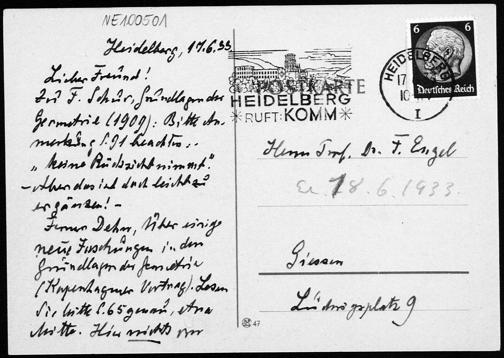 NE100501
Heidelberg, 17.6.33
Lieber Freund!
Zu F. Schur, Grundlagen der
Geometrie (1909): Bitte An-
merkung S. 91 beachten:
"keine Rücksicht nimmt."
- Aber das ist doch leicht zu
ergänzen! -
Ferner Dehn, Über einige
neue Forschungen in den
Grundlagen der Geometrie
(Kopenhagener Vortrag). Lesen
Sie bitte S. 65 genau, etwa
Mitte. Hier nichts
POSTKARTE
HEIDELBERG
RUFT: KOMM
HEIDELBERG
17.
10
I
6 6
Deutsches Reich
Herrn Prof. Dr. F. Engel
Er. 18.6.1933.
Giessen
Ludwigsplatz 9
47